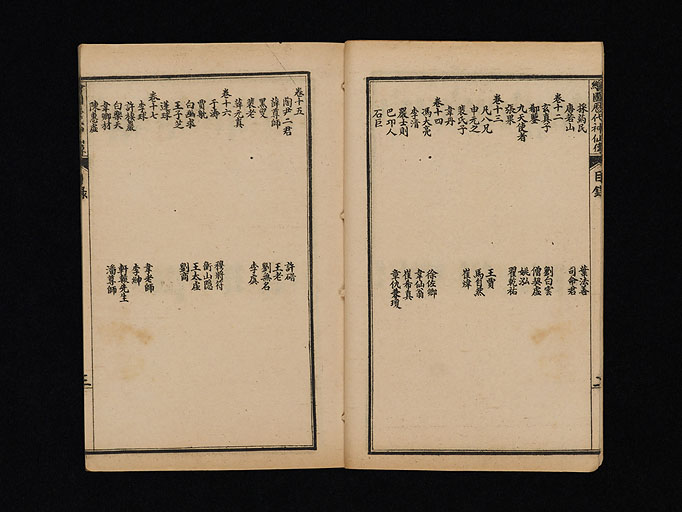 繪圖歷代神仙傳
目錄
二
採葯民
唐若山
葉法善
司命君
卷十二
玄真子
劉白雲
都鑒
僧契虛
九天使者
姚泓
張果
翟乾祐
卷十三
凡八兄
王賈
申元之
馬自然
裴氏子
崔煒
韋丹
卷十四
馮大亮
徐佐卿
李清
韋仙翁
嚴士則
崔希真
巴卭人
章仇兼瓊
石巨
卷十五
閻尹二君
許碏
薛尊師
王老
黑叟
劉無名
裴老
李虞
薛元真
卷十六
于濤
穆將符
賈躭
衡山隱
白幽求
王太虛
王子芝
劉商
逢球
卷十七
李球
韋老師
許棲巖
李紳
白樂天
軒轅先生
韋卿材
潘尊師
陳惠虛
目錄
三